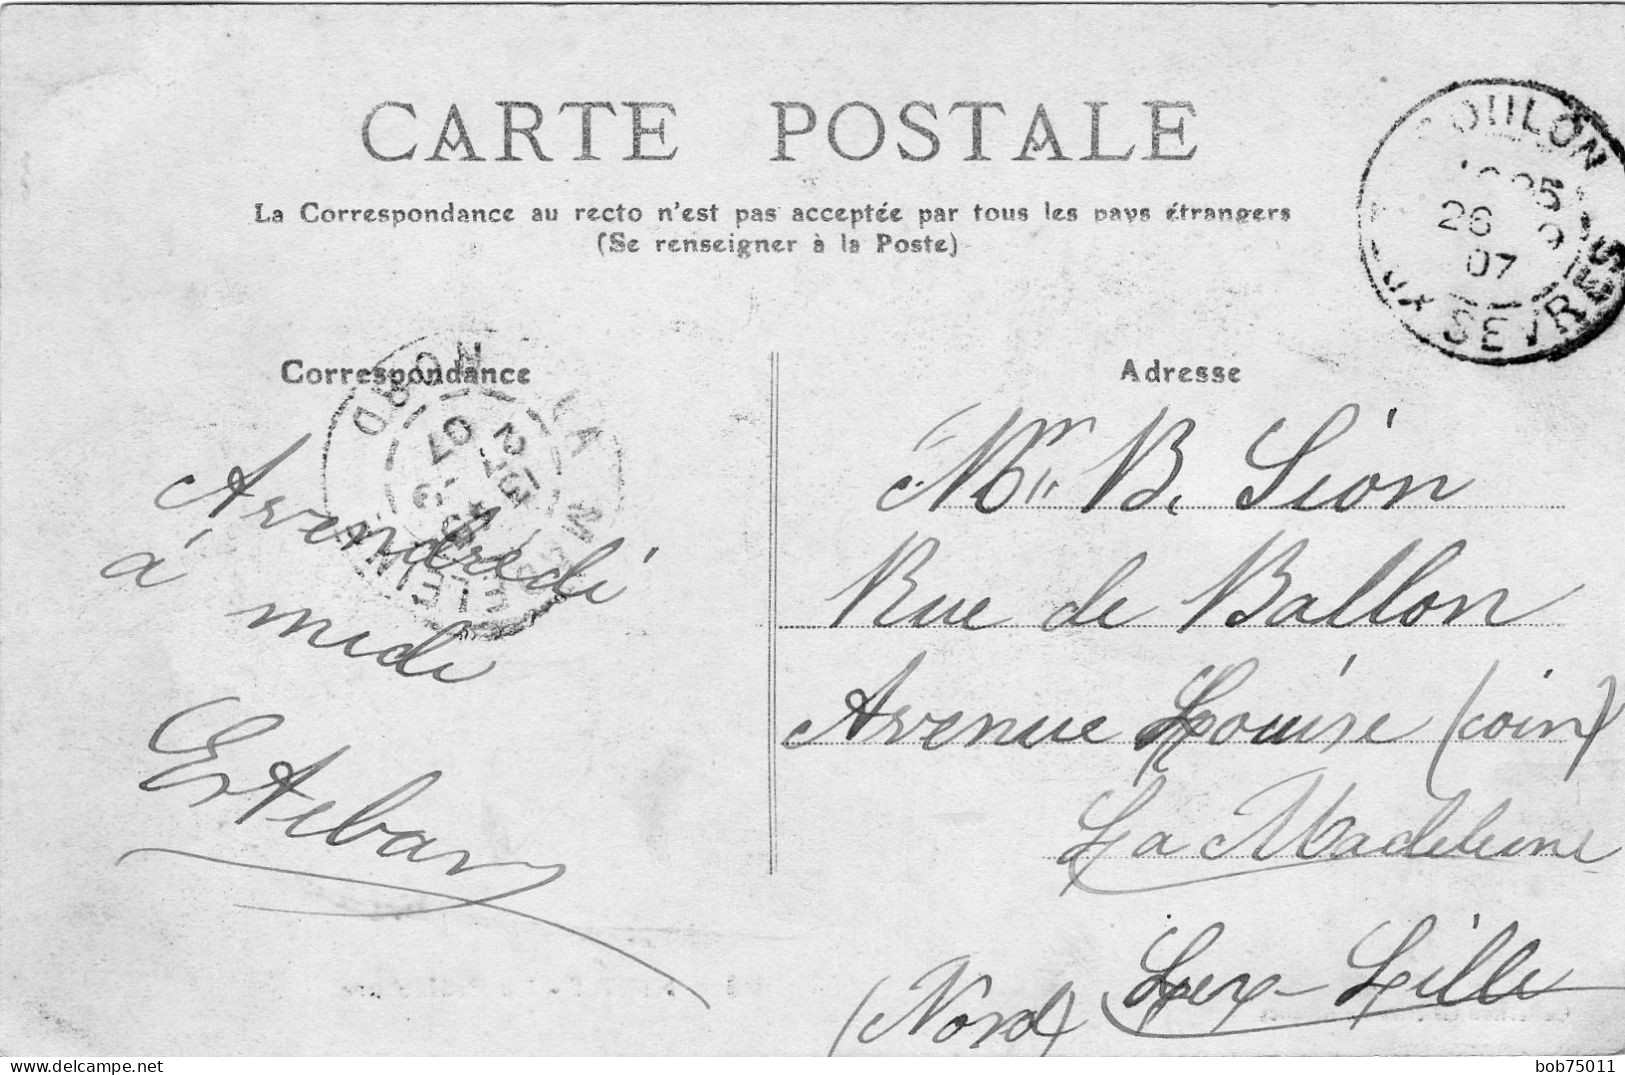 CARTE POSTALE
La Correspondance au recto n'est pas acceptée par tous les pays étrangers
(Se renseigner à la Poste)
COULON
26 9
07
SEVRES
Correspondance
Adresse
NORD
LA MADELEINE
07
A vendredi
à midi
Estebar
Mr B. Sion
Rue de Ballon
Avenue Louise (coin)
La Madeleine
Lez-Lille
(Nord)
delcampe.net
bob75011